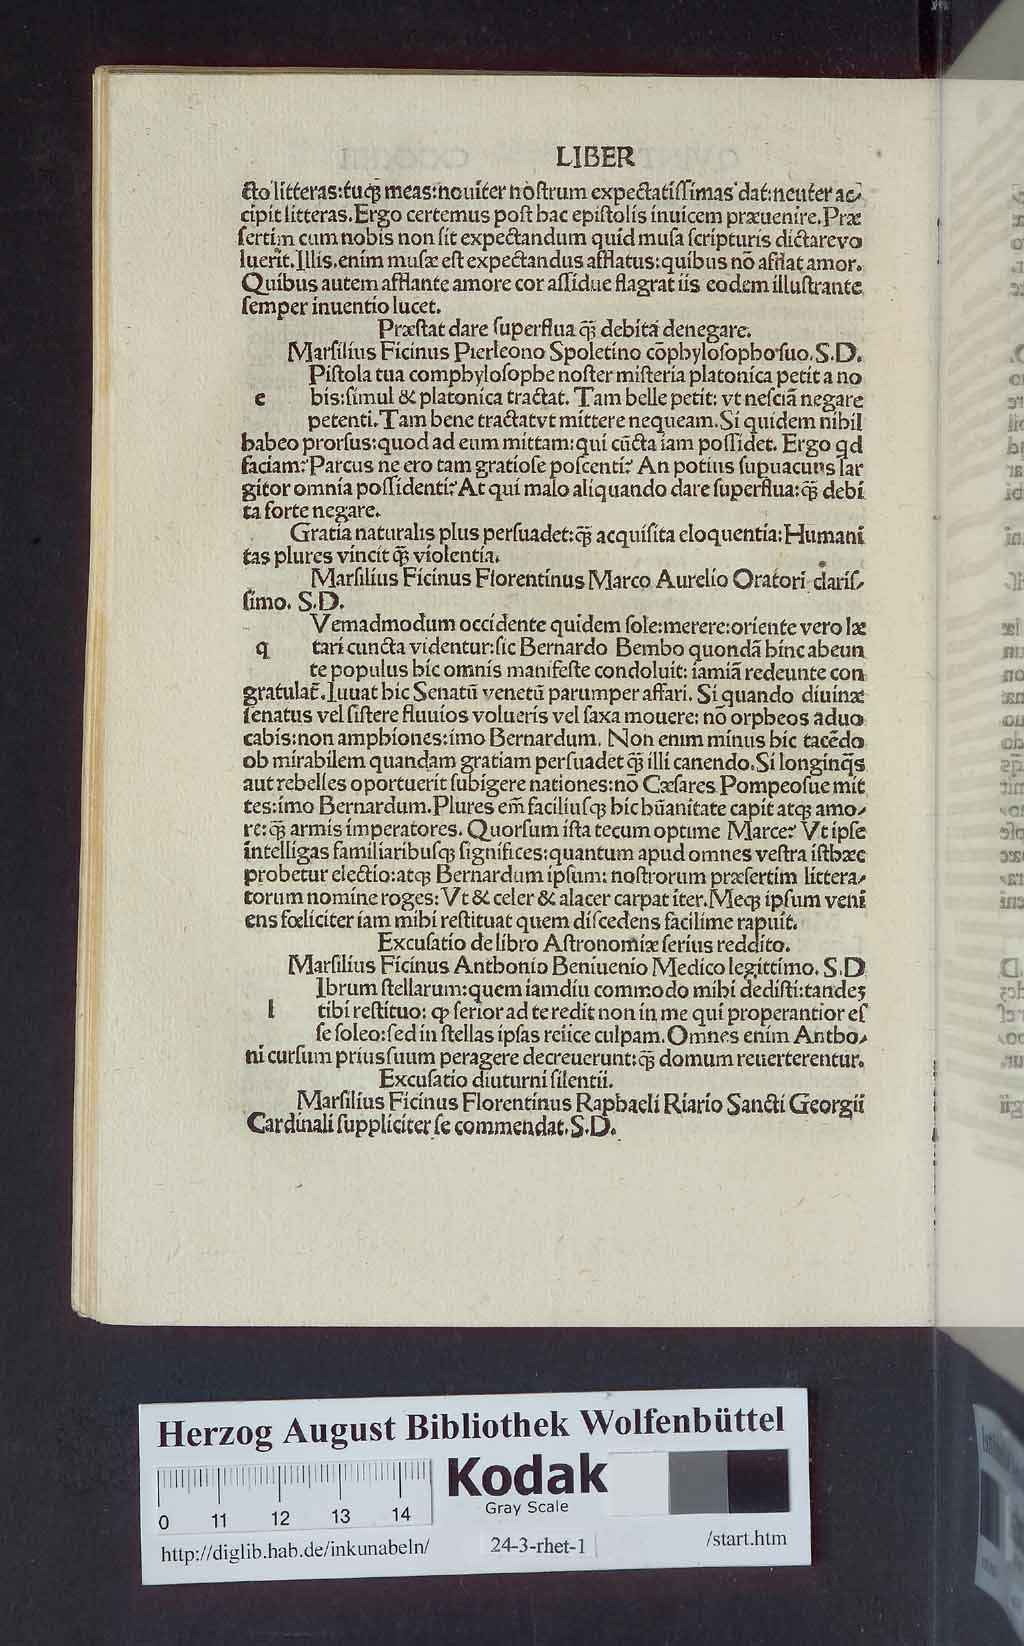 LIBER
cto litteras:tuqȝ meas:nouiter nostrum expectatissimas dat:neuter ac⸗
cipit litteras.Ergo certemus post hac epistolis inuicem præuenire.Præ
sertim cum nobis non sit expectandum quid musa scripturis dictare vo
luerit.Illis.enim musæ est expectandus afflatus:quibus nō afflat amor.
Quibus autem afflante amore cor assidue flagrat iis eodem illustrante
semper inuentio lucet.
Præstat dare superflua q̃ȝ debita denegare.
Marsilius Ficinus Pierleono Spoletino cōphylosopho suo.S.D.
Pistola tua comphylosophe noster misteria platonica petit a no
e bis:simul & platonica tractat. Tam belle petit: vt nesciā negare
petenti.Tam bene tractat vt mittere nequeam.Si quidem nihil
habeo prorsus:quod ad eum mittam:qui cūcta iam possidet. Ergo qd
faciam? Parcus ne ero tam gratiose poscenti? An potius supuacuus lar
gitor omnia possidenti? At qui malo aliquando dare superflua:q̃ȝ debi
ta forte negare.
Gratia naturalis plus persuadet:q̃ȝ acquisita eloquentia:Humani
tas plures vincit q̃ȝ violentia.
Marsilius Ficinus Florentinus Marco Aurelio Oratori claris⸗
simo. S.D.
Vemadmodum occidente quidem sole:merere:oriente vero læ
q tari cuncta videntur:sic Bernardo Bembo quondā hinc abeun
te populus hic omnis manifeste condoluit: iamiā redeunte con
gratulat̄.Iuuat hic Senatū venetū parumper affari. Si quando diuinæ
senatus vel sistere fluuios volueris vel saxa mouere: nō orpheos aduo
cabis:non amphiones:imo Bernardum. Non enim minus hic tacēdo
ob mirabilem quandam gratiam persuadet q̃ȝ illi canendo.Si longinq̃s
aut rebelles oportuerit subigere nationes:nō Cæsares Pompeosue mit
tes:imo Bernardum.Plures em̄ faciliusqȝ hic hūanitate capit atqȝ amo⸗
re:q̃ȝ armis imperatores. Quorsum ista tecum optime Marce? Vt ipse
intelligas familiaribusqȝ significes:quantum apud omnes vestra isthæc
probetur electio:atqȝ Bernardum ipsum: nostrorum præsertim littera⸗
torum nomine roges: Vt & celer & alacer carpat iter.Meqȝ ipsum veni
ens fœliciter iam mihi restituat quem discedens facilime rapuit.
Excusatio de libro Astronomiæ serius reddito.
Marsilius Ficinus Anthonio Beniuenio Medico legittimo. S.D
Ibrum stellarum:quem iamdiu commodo mihi dedisti:tandeȝ
l tibi restituo: ꝙ serior ad te redit non in me qui properantior es
se soleo:sed in stellas ipsas reiice culpam.Omnes enim Antho⸗
ni cursum prius suum peragere decreuerunt:q̃ȝ domum reuerterentur.
Excusatio diuturni silentii.
Marsilius Ficinus Florentinus Raphaeli Riario Sancti Georgii
Cardinali suppliciter se commendat.S.D.
Herzog August Bibliothek Wolfenbüttel
Kodak
Gray Scale
0 11 12 13 14
http://diglib.hab.de/inkunabeln/ 24-3-rhet-1 /start.htm